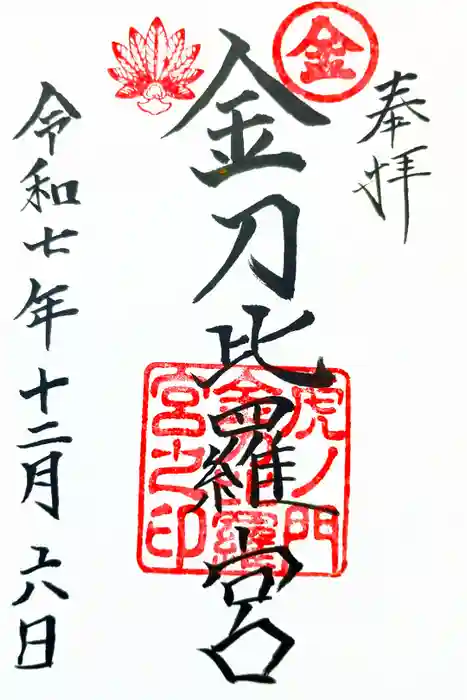 奉拝
金
金刀比羅宮
虎ノ門
金刀比羅
宮之印
令和七年十二月六日